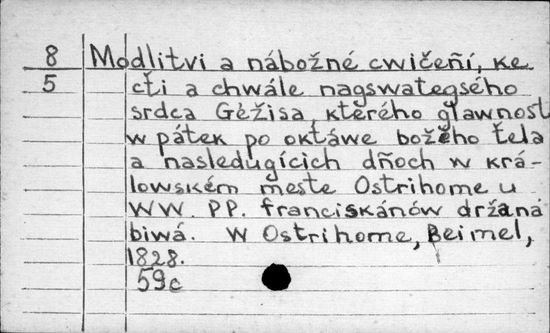 8 Modlitvi a nábožné cwičeñí, ke
5 cťi a chwále nagswategsého
srdca Gėžisa, kťerého glawnost
w pátek po oktáwe božėho ťela
a nasledugících dñoch w krá-
lowském mesťe Ostrihome u
WW. PP. franciskánów držaná
biwá. W Ostrihome, Beimel,
1828.
59c